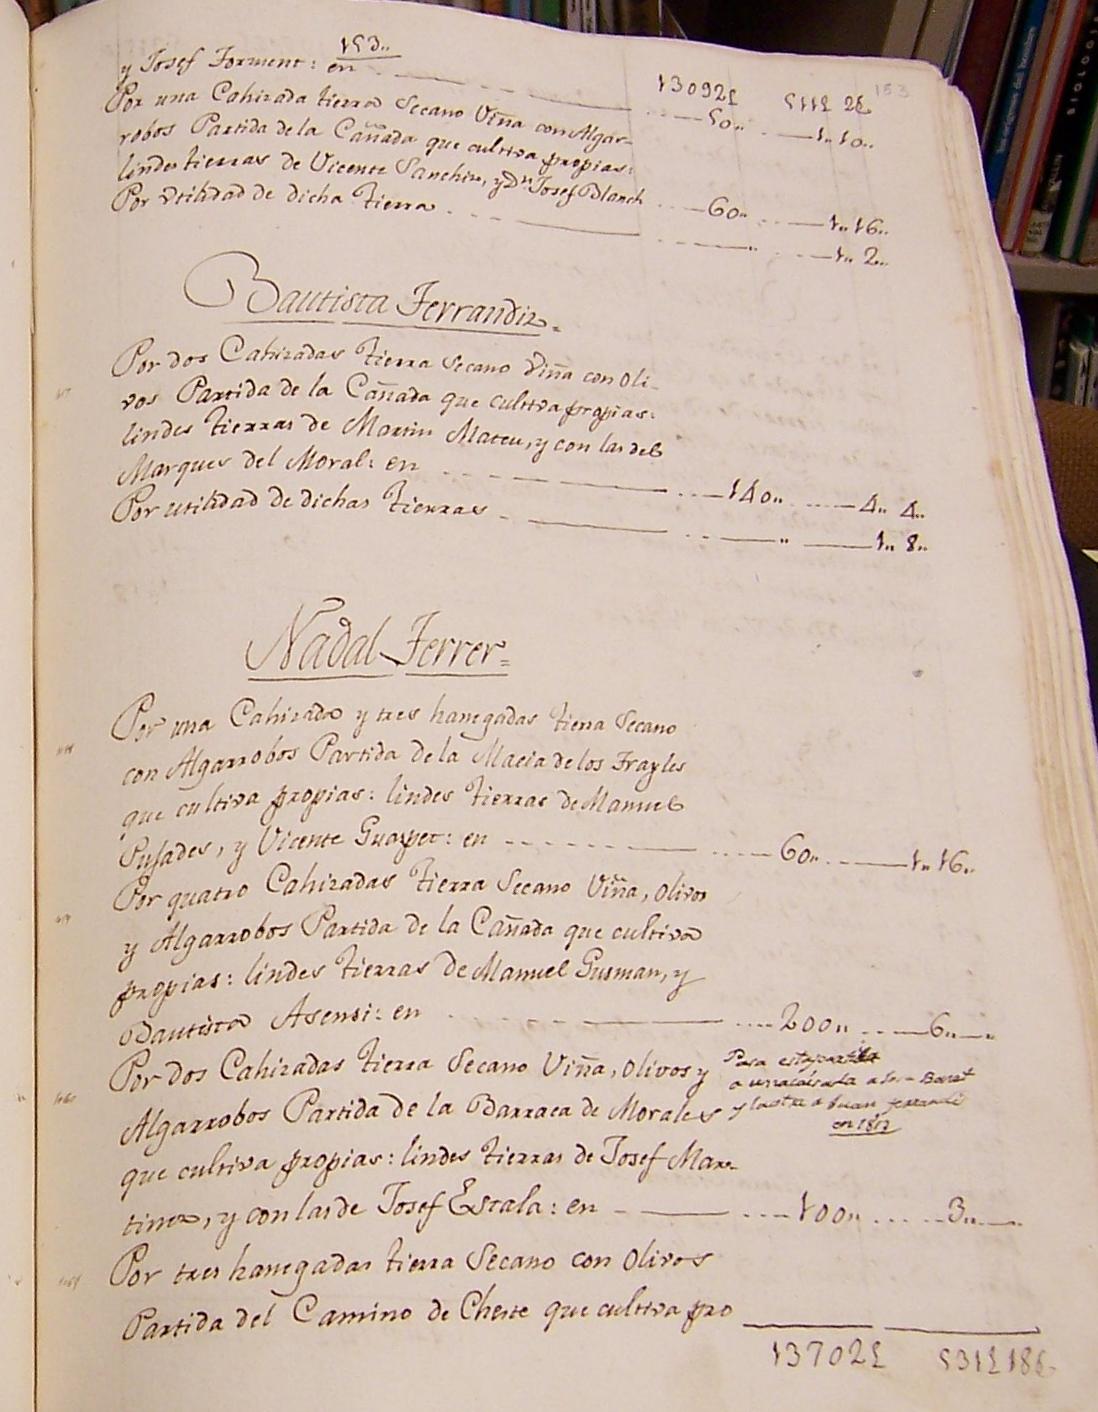 153..
y Josef Forment: en
13092£ 511£ 2s
153
50.. 1.. 10..
Por una Cahizada tierra Secano Viña con Algar-
robos Partida de la Cañada que cultiva propias:
lindes tierras de Vicente Sanchis, y Dn. Josef Blanch 60.. 1.. 16..
Por Vtilidad de dicha Tierra .. 1.. 2..
Bautista Ferrandiz
Por dos Cahizadas Tierra Secano Viña con Oli-
vos Partida de la Cañada que cultiva propias:
lindes Tierras de Martin Mateu, y con las del
Marques del Moral: en 140.. 4.. 4..
Por utilidad de dichas Tierras .. 1.. 8..
Nadal Ferrer=
Por una Cahizada y tres hanegadas tierra Secano
con Algarrobos Partida de la Macia de los Frayles
que cultiva propias: lindes Tierras de Manuel
Pujades, y Vicente Guaper: en 60.. 1.. 16..
Por quatro Cahizadas Tierra Secano Viña, Olivos
y Algarrobos Partida de la Cañada que cultiva
propias: lindes Tierras de Manuel Gusman, y
Bautista Asensi: en 200.. 6..
Por Dos Cahizadas Tierra Secano Viña, Olivos y
Pasa esta partida
a una
y la otra a Juan Ferrande
en 1812
Algarrobos Partida de la Barraca de Morales
que cultiva propias: lindes Tierras de Josef Mar-
tinez, y con las de Josef Escala: en 100.. 3..
Por tres hanegadas tierra Secano con Olivos
Partida del Camino de Cheste que cultiva pro
13702£ 531£ 18s